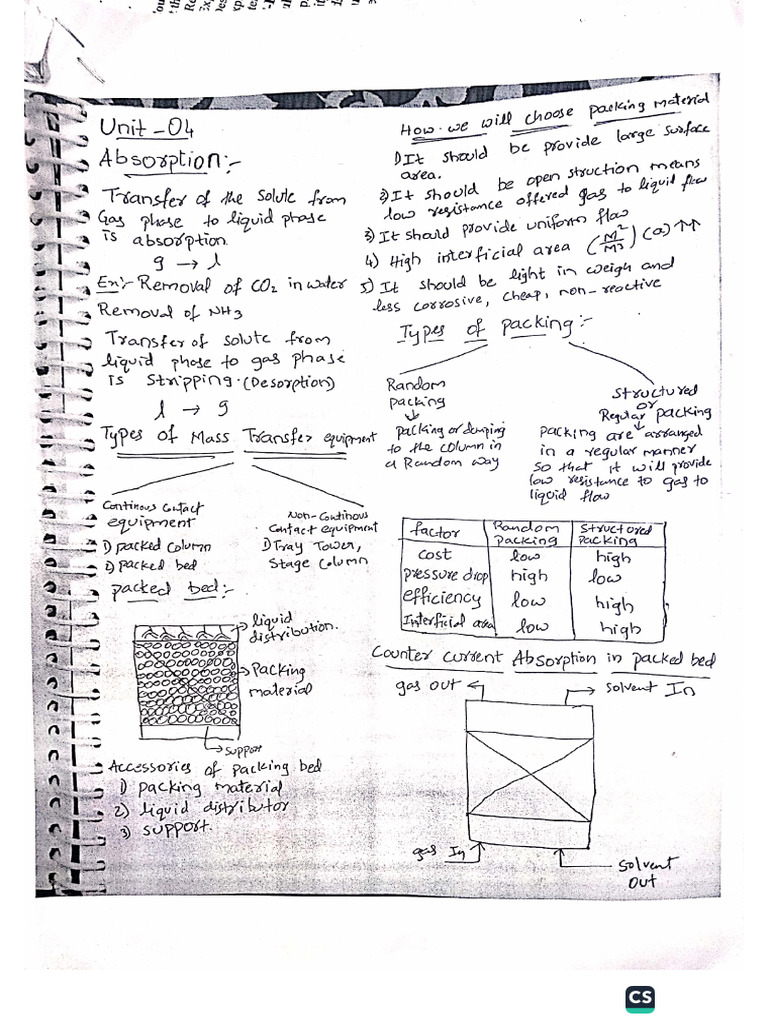 Unit-04
Absorption:-
Transfer of the solute from
Gas phase to liquid phase
is absorption.
g → l
Ex:- Removal of CO2 in water
Removal of NH3
Transfer of solute from
liquid phase to gas phase
is stripping. (Desorption)
l → g
Types of Mass Transfer equipment
Continous Contact
equipment
1) packed Column
2) packed bed
Non-Continous
Contact equipment
1) Tray Tower,
Stage Column
packed bed:-
liquid
distribution.
Packing
material
support
Accessories of packing bed
1) packing material
2) liquid distributor
3) support.
How we will choose packing material
1) It should be provide large surface
area.
2) It should be open struction means
low resistance offered gas to liquid flow
3) It should provide uniform flow
4) High interficial area (M²/M³) (a)↑↑
5) It should be light in weigh and
less corrosive, cheap, non-reactive
Types of packing:-
Random
packing
↓
packing or dumping
to the column in
a Random way
Structured
or
Regular packing
↓
packing are arranged
in a regular manner
so that it will provide
low resistance to gas to
liquid flow
factor Random Packing Structured Packing
cost low high
pressure drop high low
efficiency low high
Interficial area low high
Counter current Absorption in packed bed
gas out ← → solvent In
gas In
solvent
out
CS